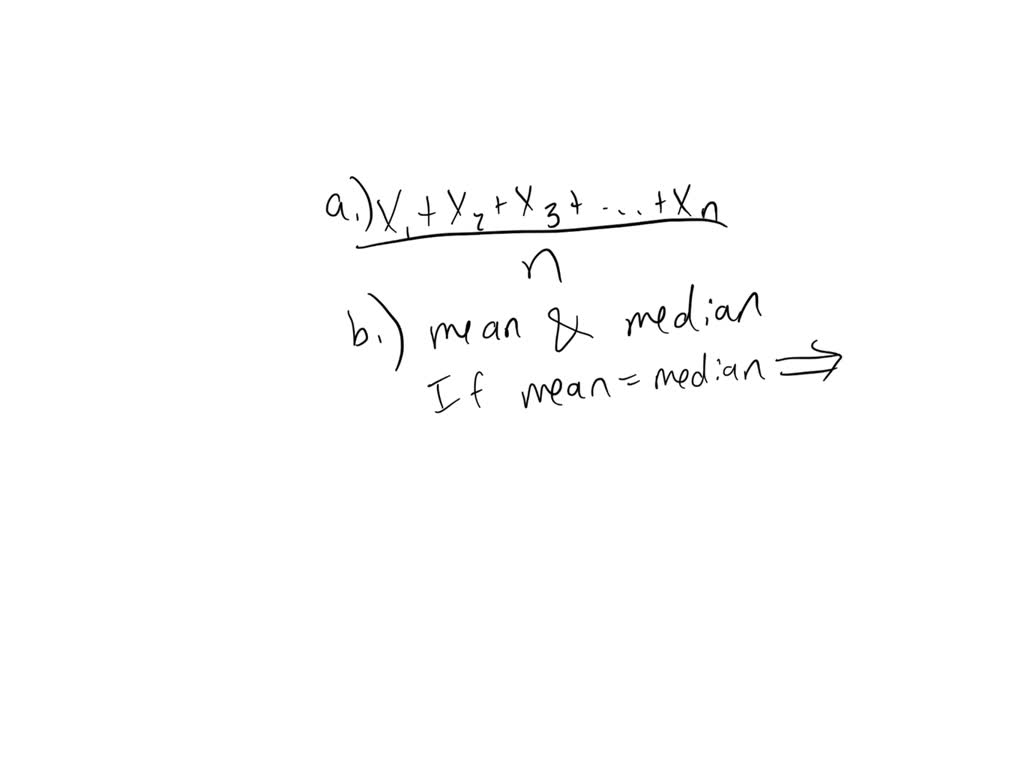 a.) X₁ + X₂ + X₃ + ... + Xₙ
n
b.) mean & median
If mean = median ⇒